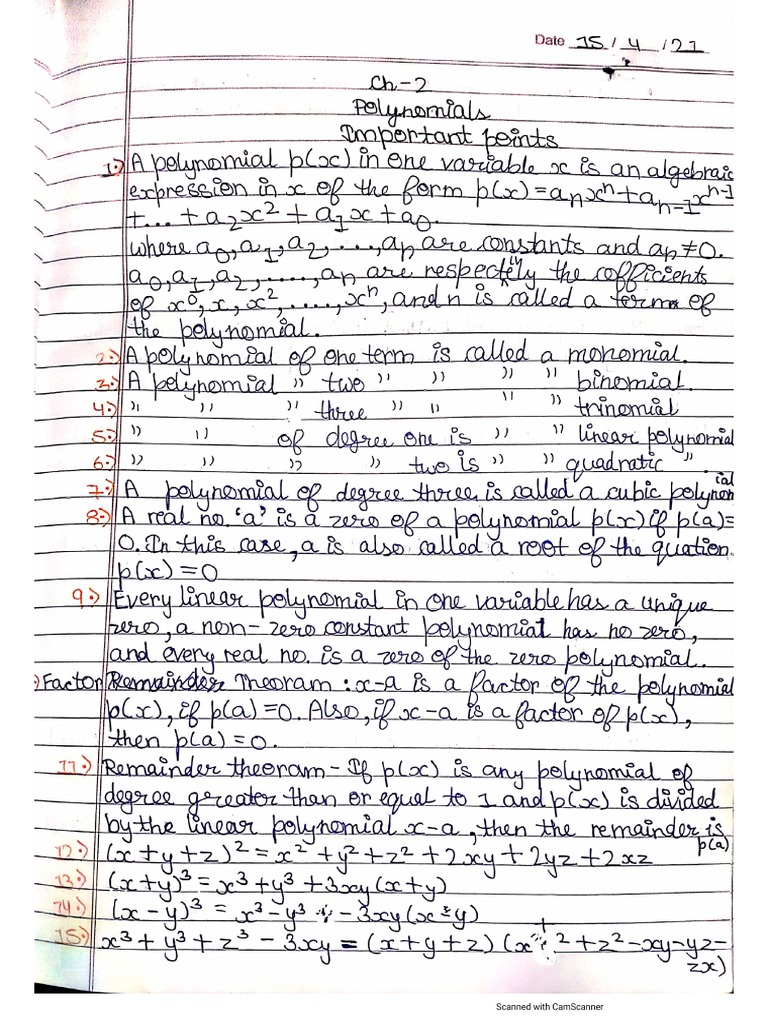 Date 15/4/21
Ch-2
Polynomials
Important points
1.) A polynomial p(x) in one variable x is an algebraic
expression in x of the form p(x) = aₙxⁿ + aₙ₋₁xⁿ⁻¹
+ ... + a₂x² + a₁x + a₀.
where a₀, a₁, a₂, ...., aₙ are constants and aₙ ≠ 0.
a₀, a₁, a₂, ....., aₙ are respectively the cofficients
of x⁰, x, x², ....., xⁿ, and n is called a term of
the polynomial.
2.) A polynomial of one term is called a monomial.
3.) A polynomial " two " " " " binomial.
4.) " " " three " " " " trinomial
5.) " " of degree one is " " linear polynomial
6.) " " " " two is " " quadratic ".
7.) A polynomial of degree three is called a cubic polynomial
8.) A real no. 'a' is a zero of a polynomial p(x) if p(a)=
0. In this case, a is also called a root of the quation
p(x) = 0
9.) Every linear polynomial in one variable has a unique
zero, a non-zero constant polynomial has no zero,
and every real no. is a zero of the zero polynomial.
Factor Theoram : x-a is a factor of the polynomial
p(x), if p(a) = 0. Also, if x-a is a factor of p(x),
then p(a) = 0.
11.) Remainder theoram - If p(x) is any polynomial of
degree gereater than or equal to 1 and p(x) is divided
by the linear polynomial x-a, then the remainder is
p(a)
12.) (x+y+z)² = x² + y² + z² + 2xy + 2yz + 2xz
13.) (x+y)³ = x³ + y³ + 3xy(x+y)
14.) (x-y)³ = x³ - y³ - 3xy(x-y)
15.) x³ + y³ + z³ - 3xy = (x+y+z) (x² + z² - xy - yz -
zx)
Scanned with CamScanner